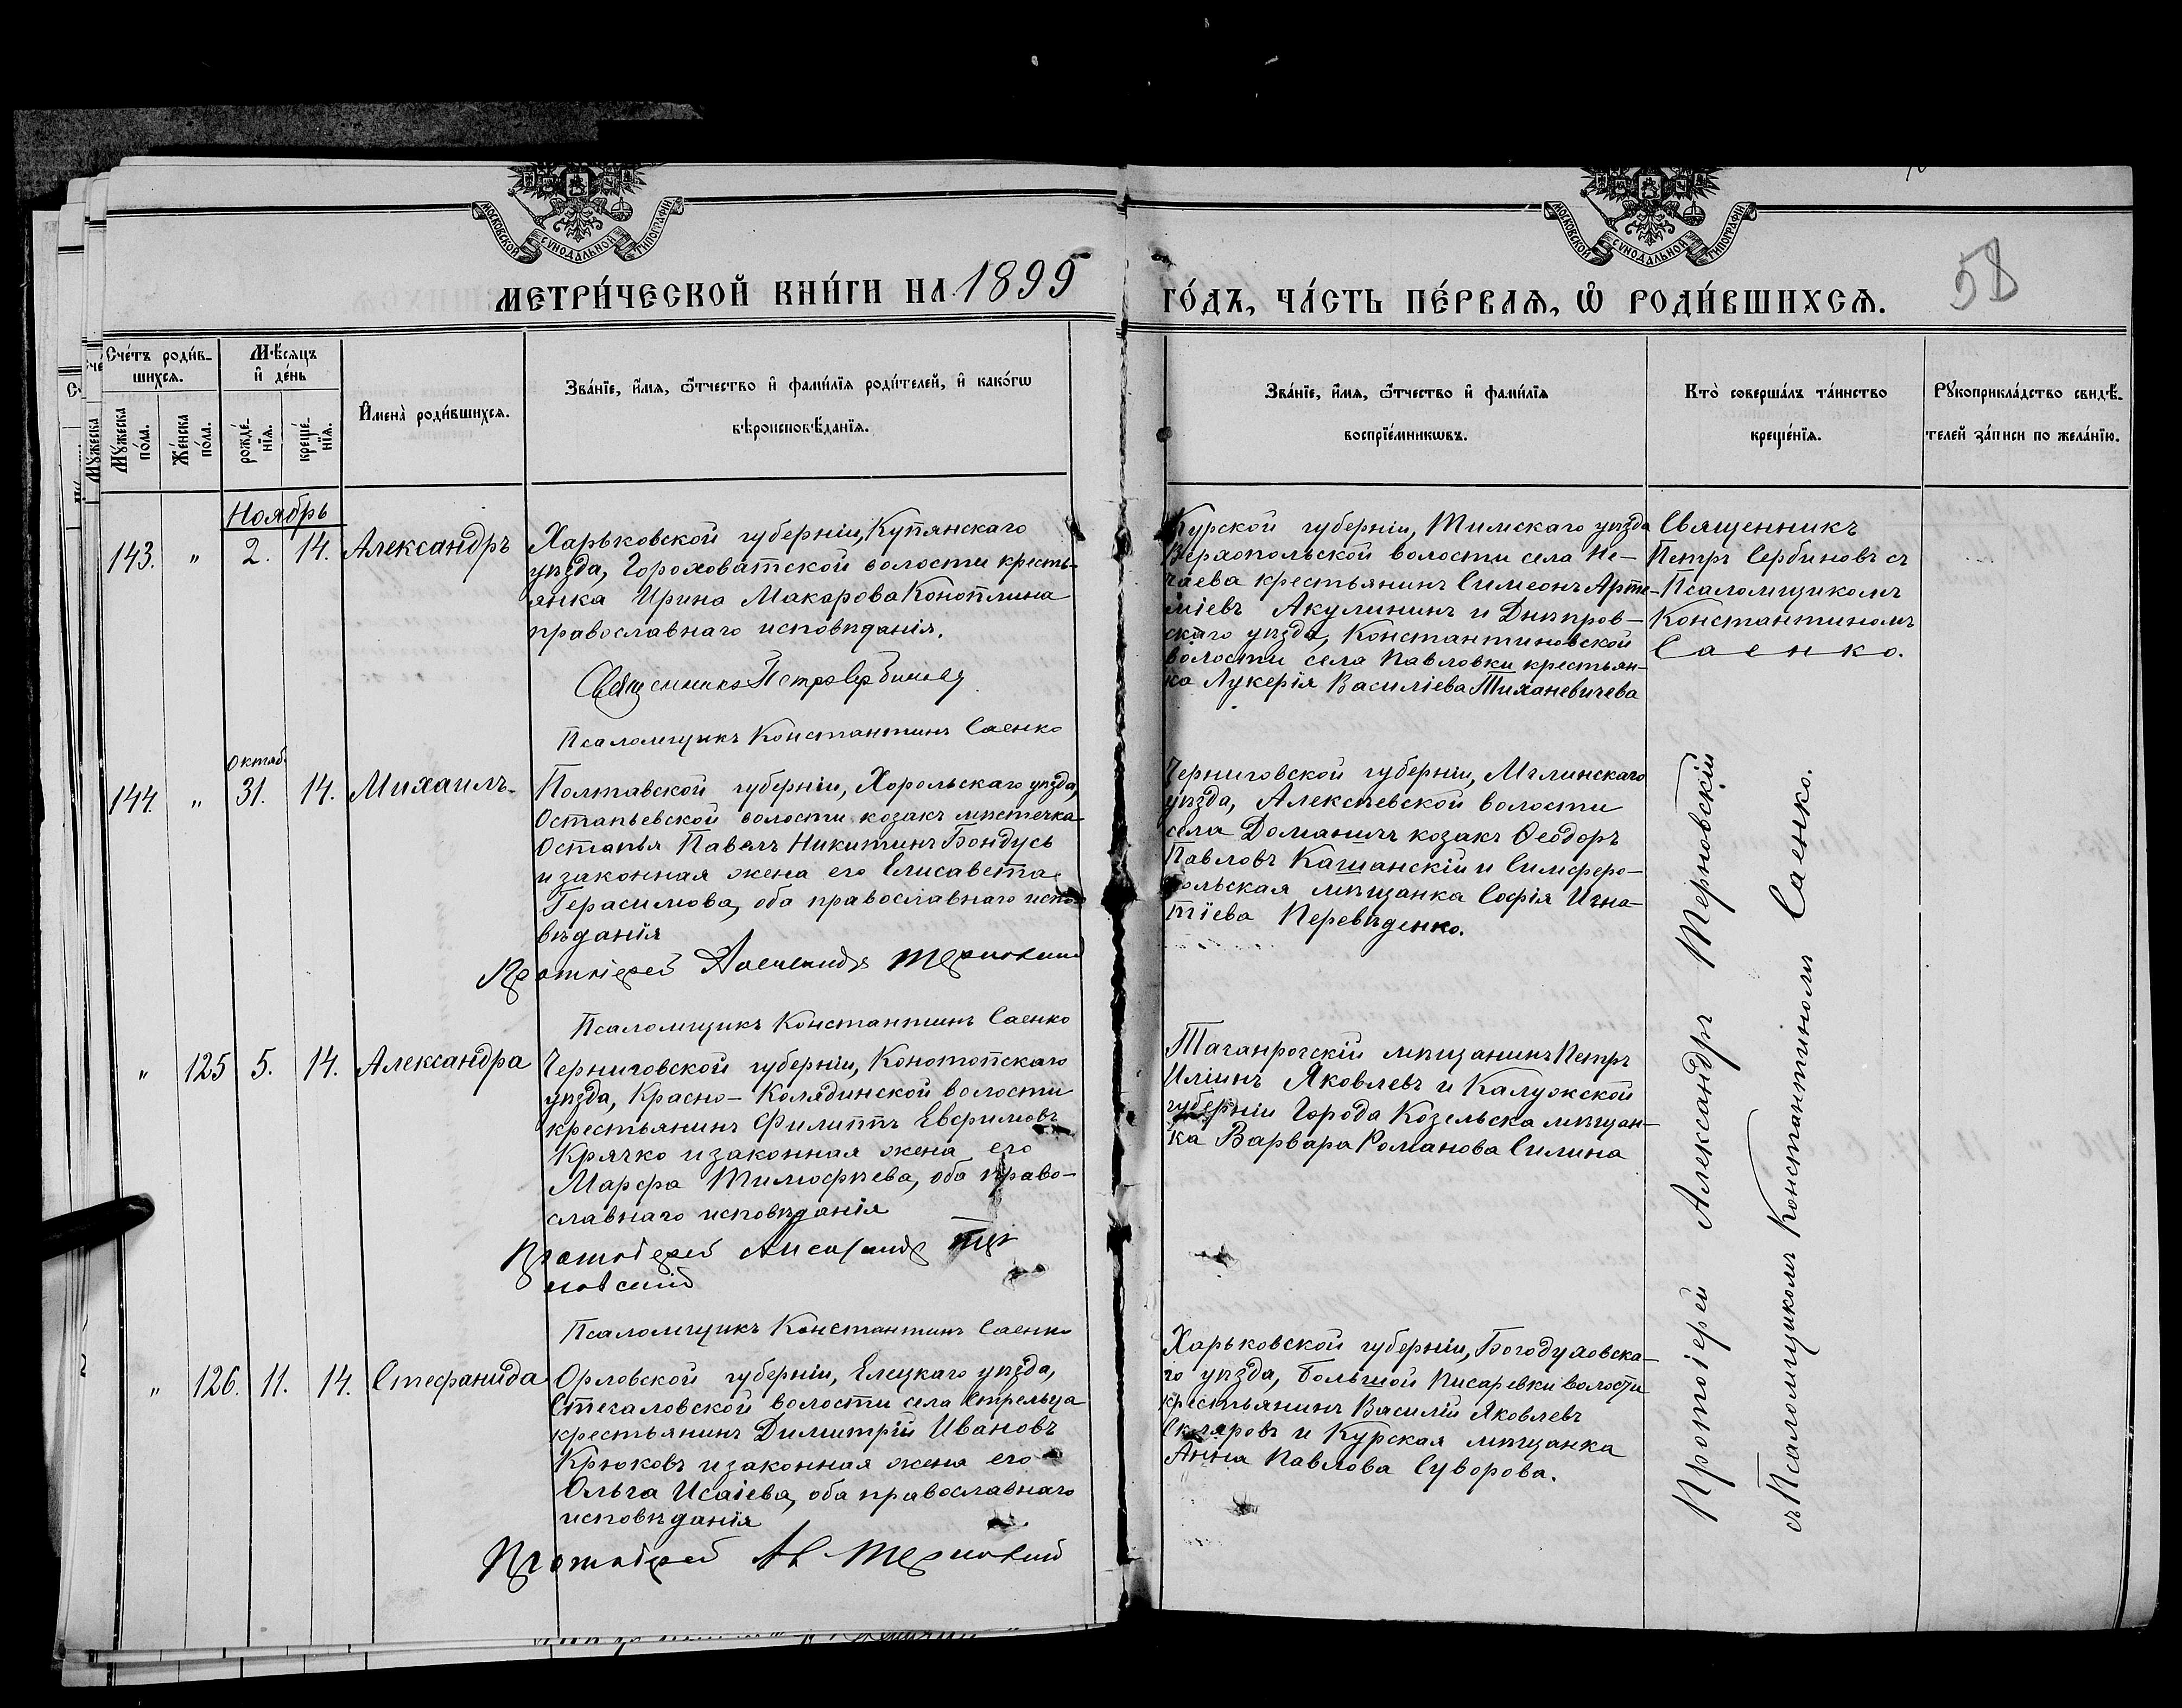 МОСКОВСКОЙ СѴНОДАЛЬНОЙ ТИПОГРАФІИ
МОСКОВСКОЙ СѴНОДАЛЬНОЙ ТИПОГРАФІИ
МЕТРИ́ЧЕСКОЙ КНИ́ГИ НА 1899 ГО́ДЪ, ЧА́СТЬ ПЕ́РВАЯ, Ѿ РОДИ́ВШИХСЯ.
58
Счетъ родив-
шихся.
Мужеска
пола.
Женска
пола.
Мѣсяцъ
и день
рожде-
нія.
креще-
нія.
Имена родившихся.
Званіе, имя, отчество и фамилія родителей, и какого
вѣроисповѣданія.
Званіе, имя, отчество и фамилія
воспріемниковъ.
Кто совершалъ таинство
крещенія.
Рукоприкладство свидѣ-
телей записи по желанію.
Ноябрь
143. " 2. 14. Александръ
Харьковской губерніи, Купянскаго
уѣзда, Гороховатской волости кресть-
янка Ирина Макарова Коноплина
православнаго исповѣданія.
Священникъ Петръ Сербиновъ
Псаломщикъ Константинъ Саенко
Курской губерніи, Тимскаго уѣзда
Верхопольской волости села Не-
чаева крестьянинъ Симеонъ Арте-
міевъ Акулининъ и Днѣпров-
скаго уѣзда, Константиновской
волости села Павловки крестьян-
ка Лукерія Василіева Тиханевичева
Священникъ
Петръ Сербиновъ съ
Псаломщикомъ
Константиномъ
Саенко.
Октяб.
144. " 31. 14. Михаилъ.
Полтавской губерніи, Хорольскаго уѣзда,
Остапьевской волости козакъ мѣстечка
Остапья Павелъ Никитинъ Бондусь
и законная жена его Елисавета
Герасимова, оба православнаго испо-
вѣданія
Протоіерей Александръ Терновскій
Псаломщикъ Константинъ Саенко
Черниговской губерніи, Мглинскаго
уѣзда, Алексѣевской волости
села Доманичъ козакъ Ѳеодоръ
Павловъ Кашанскій и Симферо-
польская мѣщанка Софія Игна-
тіева Перевѣденко.
" 125 5. 14. Александра
Черниговской губерніи, Конотопскаго
уѣзда, Красно-Колядинской волости
крестьянинъ Филиппъ Евфимовъ
Крячко и законная жена его
Марфа Тимофѣева, оба право-
славнаго исповѣданія
Протоіерей Александръ Тер
новскій
Псаломщикъ Константинъ Саенко
Таганрогскій мѣщанинъ Петръ
Иліинъ Яковлевъ и Калужской
губерніи Города Козельска мѣщан-
ка Варвара Романова Силина
" 126. 11. 14. Стефанида
Орловской губерніи, Елецкаго уѣзда,
Стегаловской волости села Стрельца
крестьянинъ Димитрій Ивановъ
Крюковъ и законная жена его
Ольга Исаіева, оба православнаго
исповѣданія
Протоіерей Ал Терновскій
Харьковской губерніи, Богодуховска-
го уѣзда, Большой Писаревки волости
крестьянинъ Василій Яковлевъ
Скляровъ и Курская мѣщанка
Анна Павлова Суворова.
Протоіерей Александръ Терновскій
съ Псаломщикомъ Константиномъ Саенко.